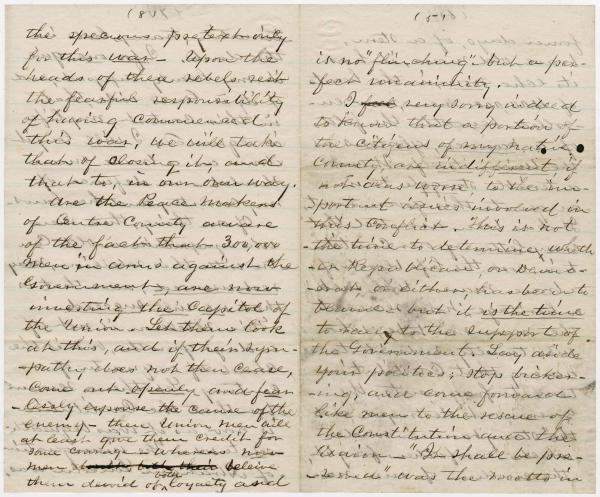 ( 8 )
the specious pretext only
for this war - Upon the
heads of these rebels rest
the fearful responsibility
of having commenced
this war, we will take
that of closing it and
that to, in our own way.
Are the Peace Makers
of Centre County aware
of the fact that 300,000
men in arms against the
Government, are now
investing the Capitol of
the Union - Let them look
at this, and if their sym-
-pathy does not then cease,
Come out openly and fear-
-lessly espouse the cause of the
enemy - then Union men will
at least give them credit for
some courage - whereas now
men believe
them devoid of both loyalty and
( 5 )
is no "flinching" but a per-
fect unanimity.
I feel very sorry indeed
to know that a portion of
the citizens of my native
County are indifferent if
not divs worse to the im-
portant issues involved in
this conflict. This is not
the time to determine, wheth-
-er Republican, or Democ-
-rat or either, has been to
blame - but it is the time
to rally to the support of
the Government. Lay aside
your politics; stop bicker-
-ing, and come forward
like men to the rescue of
the Constitution and the
Union - "It shall be pre-
-served" was the motto in